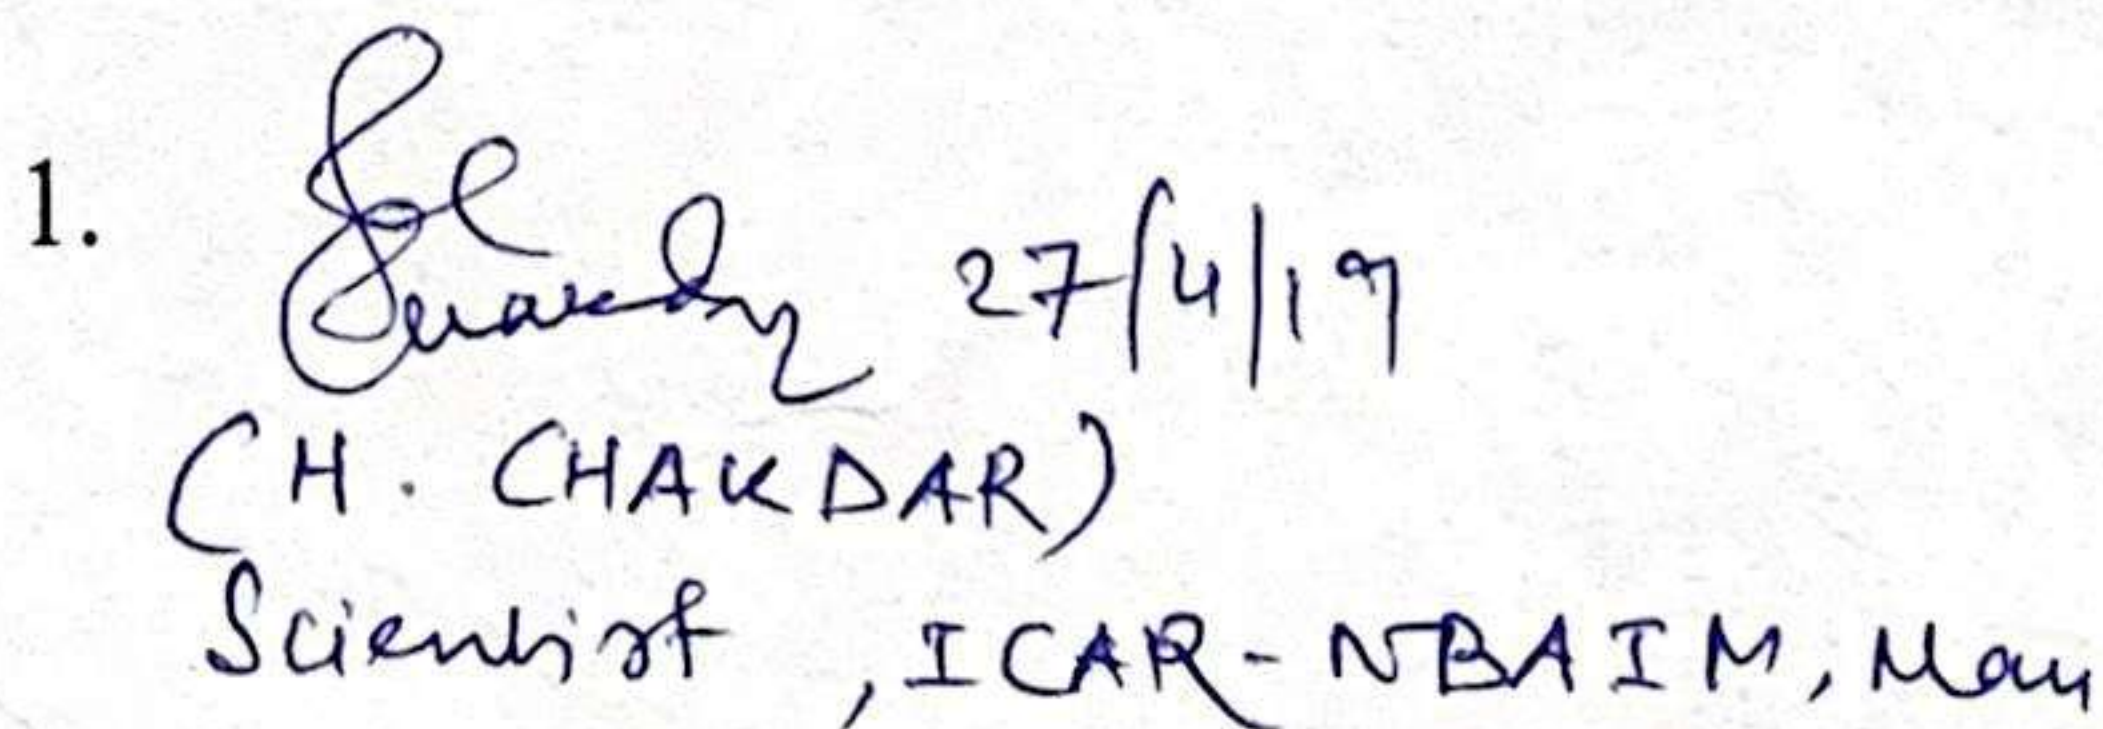 1. 27/4/19
(H. CHAKDAR)
Scientist, ICAR-NBAIM, Mau